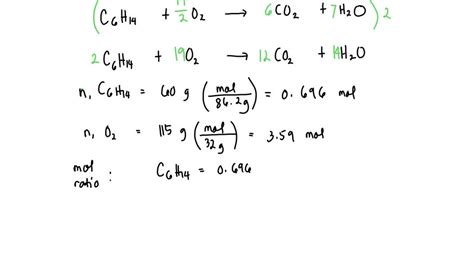 (C₆H₁₄ + 19/2 O₂ → 6CO₂ + 7H₂O) 2
2C₆H₁₄ + 19O₂ → 12CO₂ + 14H₂O
n, C₆H₁₄ = 60 g (mol/86.2g) = 0.696 mol
n, O₂ = 115 g (mol/32g) = 3.59 mol
mol ratio : C₆H₁₄ = 0.696